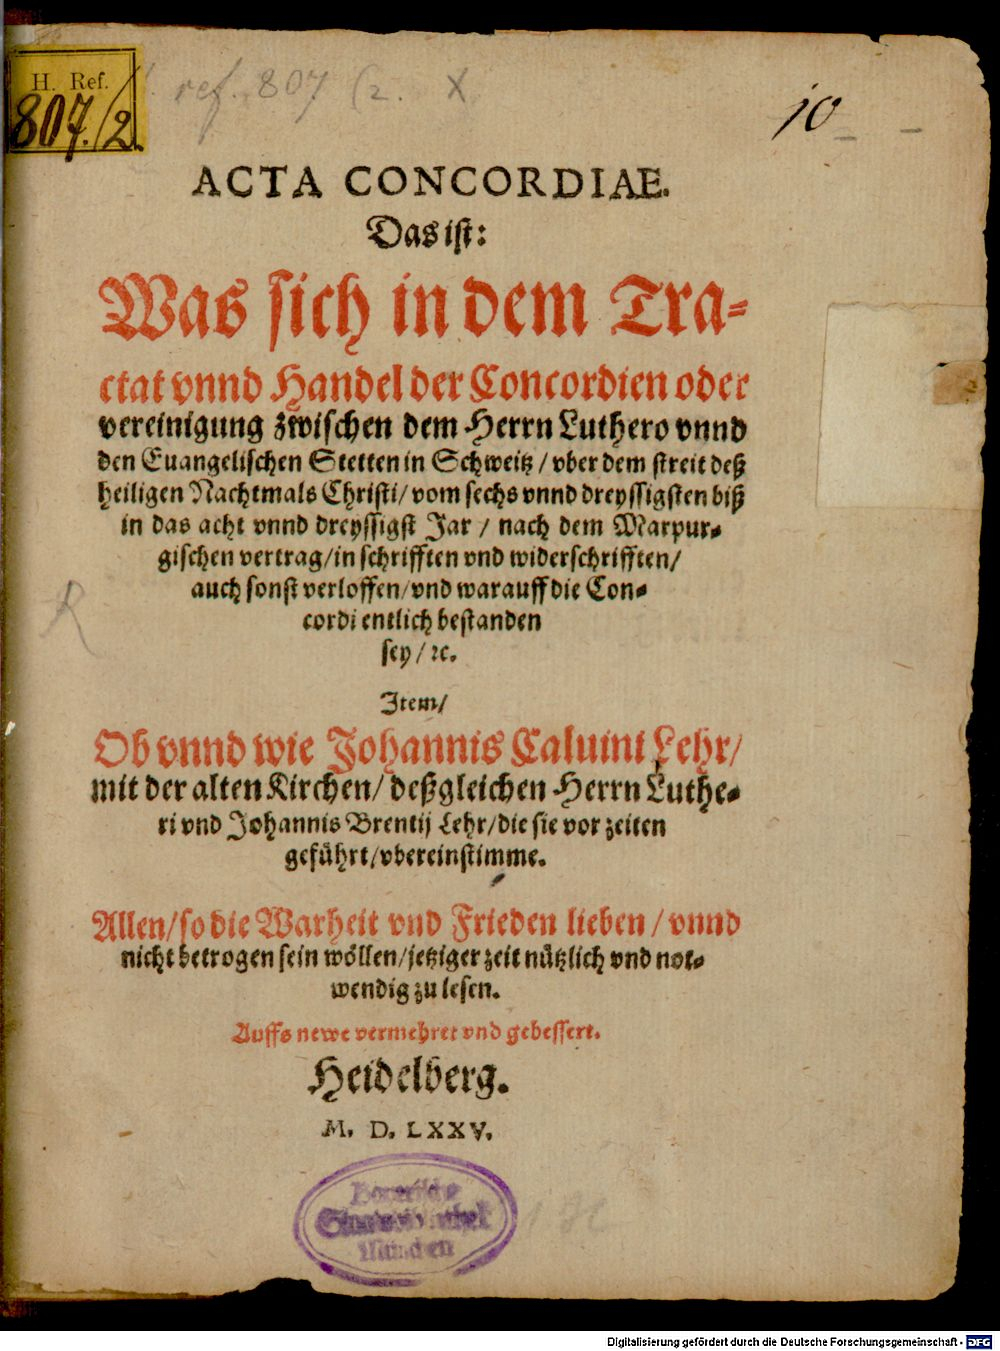 H. Ref.
807./2.
ref. 807 (2. X
10
ACTA CONCORDIAE.
Das ist:
Was sich in dem Tra-
ctat vnnd Handel der Concordien oder
vereinigung zwischen dem Herrn Luthero vnnd
den Euangelischen Stetten in Schweitz / vber dem streit deß
heiligen Nachtmals Christi / vom sechs vnnd dreyssigsten biß
in das acht vnnd dreyssigst Jar / nach dem Marpur-
gischen vertrag / in schrifften vnd widerschrifften /
auch sonst verloffen / vnd warauff die Con-
cordi entlich bestanden
sey / ꝛc.
Item /
Ob vnnd wie Johannis Caluini Lehr /
mit der alten Kirchen / deßgleichen Herrn Luthe-
ri vnd Johannis Brentij Lehr / die sie vor zeiten
geführt / vbereinstimme.
Allen / so die Warheit vnd Frieden lieben / vnnd
nicht betrogen sein wöllen / jetziger zeit nützlich vnd not-
wendig zu lesen.
Auffs newe vermehret vnd gebessert.
Heidelberg.
M. D. LXXV.
Bayerische
Staatsbibliothek
München
R
Digitalisierung gefördert durch die Deutsche Forschungsgemeinschaft - DFG